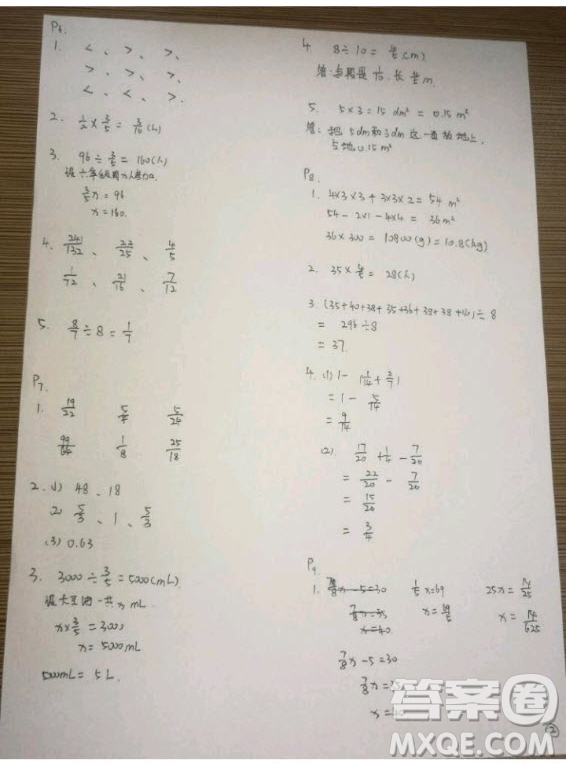 P6.
1. <、>、>、
>、>、>、
<、<、>.
2. 1/2 × 3/5 = 3/10 (h)
3. 96 ÷ 3/5 = 160(人)
3/5 x = 96
x = 160.
4. 241/132、23/25、4/5
1/72、21/16、7/12
5. 8/7 ÷ 8 = 1/7
P7.
1. 19/22 5/4 5/24
1/8 25/18
2. (1) 48、18
(2) 5/3、1、5/3
(3) 0.63
3. 3000 ÷ 3/5 = 5000(mL)
设大豆油一共x mL.
x × 3/5 = 3000
x = 5000mL
5000mL = 5L.
4. 8÷10 = 4/5 (m)
答:每段是1/10.长4/5m.
5. 5×3=15 dm² = 0.15 m²
答: 把5dm和3dm这一面放地上,
占地0.15m²
P8.
1. 4×3×3+3×3×2=54 m²
36×300 = 10800(g)=10.8(kg)
2. 35 × 4/5 = 28(人)
= 296÷8
= 37.
4. (1) 1-(1/14+2/7)
= 1 - 5/14
= 9/14
(2) 17/20 + 1/4 - 7/20
= 22/20 - 7/20
= 15/20
= 3/4
P9
1. 7/8x-5=30 25x = 14/25
7/8x=35 x = 14/625
x=40
7/8x-5=30
x=40
答案圈
MXQE.COM